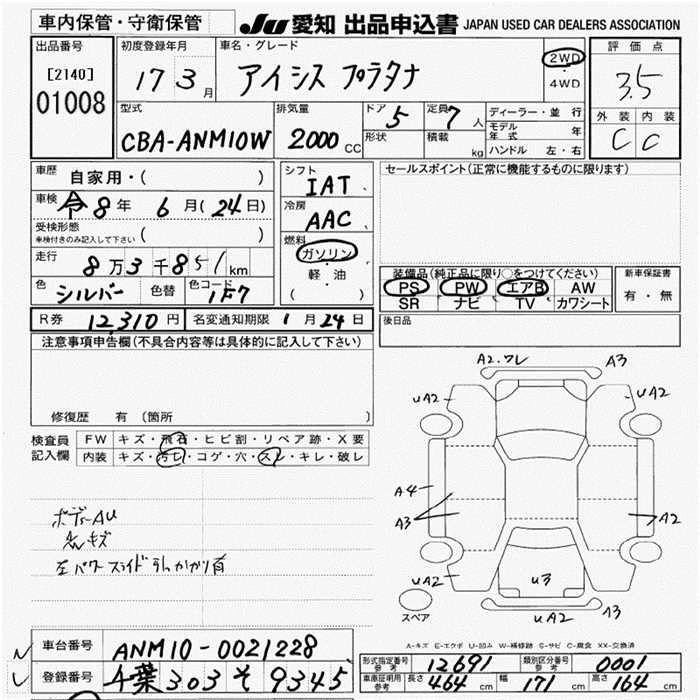 車内保管・守衛保管
JU 愛知 出品申込書 JAPAN USED CAR DEALERS ASSOCIATION
出品番号
[2140]
01008
初度登録年月
17 3月
車名・グレード
アイシス プラタナ
2WD
・
4WD
評価点
3.5
外装 内装
C C
型式
CBA-ANM10W
排気量
2000 CC
ドア 5
形状
定員 7 人
積載 kg
ディーラー・並行
モデル年式 年
ハンドル 左・右
車歴
自家用・( )
車検
令8年 6月(24日)
受検形態
車検付きのみ記入して下さい ( )
走行
8万3千851km
色
シルバー
色替
色コード
1F7
シフト
IAT
冷房
AAC
燃料
ガソリン
・
軽油
( )
セールスポイント(正常に機能するものに限ります)
装備品(純正品に限り○をつけてください)
PS PW エアB AW
SR ナビ TV カワシート
新車保証書
有・無
R券 12,310円
名変通知期限 1月24日
後日品
注意事項申告欄(不具合内容等は具体的に記入して下さい)
修復歴 有 (箇所
検査員
記入欄
FW キズ・飛石・ヒビ割・リペア跡・X要
内装 キズ・汚レ・コゲ・穴・スレ・キレ・破レ
ボデーAU
キズ
左パワースライド引っかかり有
A2.ワレ A3
UA2 UA2
A4
A3 A2
UA2 A2
U3
UA2 A3
スペア
A-キズ E-エクボ U-凹み W-補修跡 S-サビ C-腐食 XX-交換済
車台番号 ANM10-0021228
登録番号 千葉303 そ 9345
形式指定番号
参考
12691
類別区分番号
参考
0001
車庫証明用
参考
長さ 464 cm 幅 171 cm 高さ 164 cm